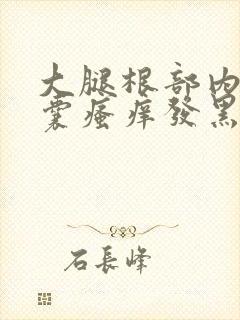 大腿根部内
囊瘙痒發黑
石長峰